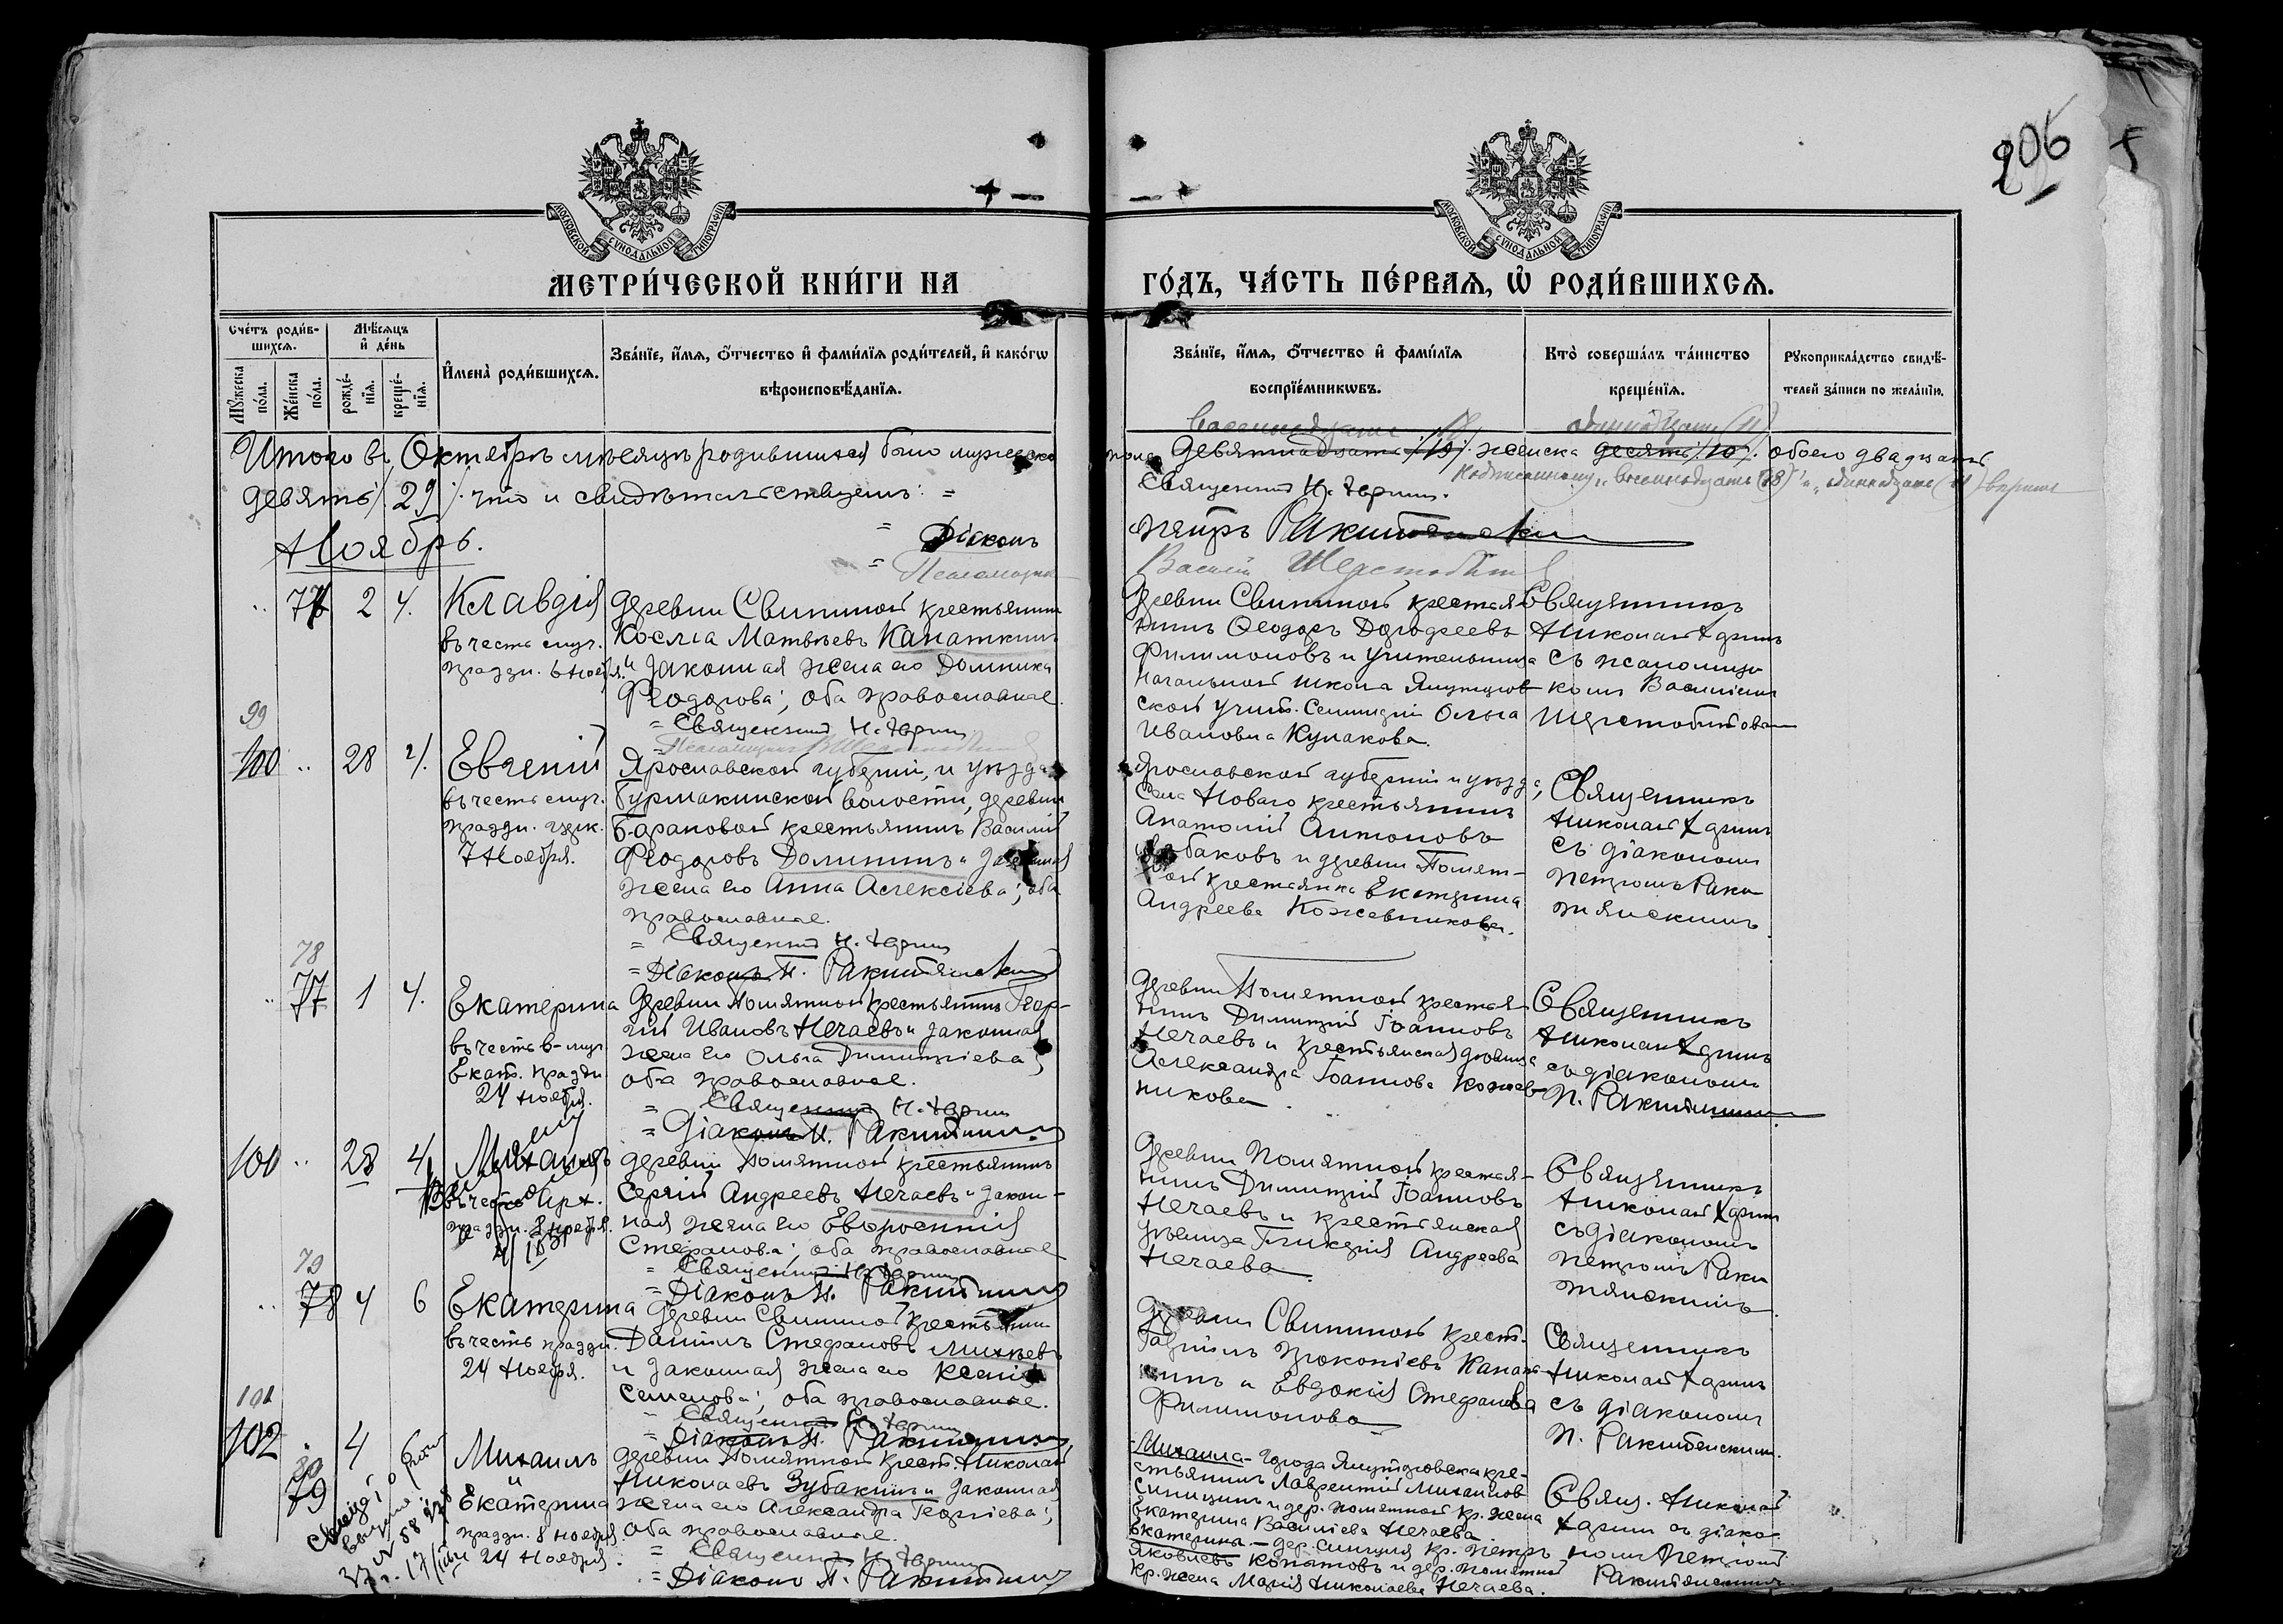 206
МОСКОВСКОЙ СѴНОДАЛЬНОЙ ТИПОГРАФІИ
МОСКОВСКОЙ СѴНОДАЛЬНОЙ ТИПОГРАФІИ
МЕТРИ́ЧЕСКОЙ КНИ́ГИ НА
ГО́ДЪ, ЧА́СТЬ ПЕ́РВАѦ, Ѽ РОДИ́ВШИХСѦ.
Сче́тъ роди́в-
шихсѧ.
Мѣ́сѧцъ
и҆ де́нь
Мꙋ́жеска по́ла.
Же́нска по́ла.
рожде́-
нїѧ.
креще́-
нїѧ.
И҆мена̀ роди́вшихсѧ.
Зва́нїе, и҆́мѧ, ѻ҆́тчество и҆ фамі́лїѧ роди́телей, и҆ како́гѡ
вѣроисповѣ́данїѧ.
Зва́нїе, и҆́мѧ, ѻ҆́тчество и҆ фамі́лїѧ
воспрїе́мникѡвъ.
Кто̀ соверша́лъ та́инство
креще́нїѧ.
Рꙋкоприкла́дство свидѣ́-
телей за́писи по жела́нїю.
Итого въ Октябрѣ мѣсяцѣ родившихся было мужеска
пола девятнадцать /19/. женска десять /10/. обоего двадцать
девять /.29/. что и свидѣтельствуемъ: =
Священникъ Н.
= Діаконъ
Петръ Ракитянскій
= Псаломщикъ
Василій Шерстобитовъ
Ноябрь.
" 77 2 4. Клавдія
въ честь муч.
праздн. 6 Ноября.
деревни Свининой крестьянинъ
Косма Матвѣевъ Канаткинъ
и законная жена его Домника
Феодорова; оба православные.
= Священникъ Н.
деревни Свининой крестья-
нинъ Ѳеодоръ
Филимоновъ и учительница
начальной школы Ялуторов-
ской учит. Семинаріи Ольга
Ивановна Кулакова.
Священникъ
Николай
съ псаломщи-
комъ Василіемъ
Шерстобитовымъ
99
100 " 28 4. Евгеній
въ честь муч.
праздн.
7 Ноября.
Ярославской губерніи, и уѣзда
Бурмакинской волости, деревни
Барановой крестьянинъ Василій
Феодоровъ Долининъ и законная
жена его Анна Алексіева; оба
православные.
= Священникъ Н.
= Діаконъ П. Ракитянскій
Ярославской губерніи и уѣзда,
села Новаго крестьянинъ
Анатолій Антоновъ
и деревни Помят-
ной крестьянка Екатерина
Андреева Кожевникова.
Священникъ
Николай
съ діакономъ
Петромъ Раки-
тянскимъ.
78
" 77 1 4. Екатерина
въ честь в-муч.
Екат. праздн.
24 Ноября.
деревни Помятной крестьянинъ Геор-
гій Ивановъ Нечаевъ и законная
жена его Ольга Димитріева;
оба православные.
= Священникъ Н.
= Діаконъ П. Ракитянскій
деревни Помятной крестья-
нинъ Димитрій Іоанновъ
Нечаевъ и крестьянская дѣвица
Александра Іоаннова Кожев-
никова.
Священникъ
Николай
съ діакономъ
П. Ракитянскимъ
100 " 28 4. Михаилъ
въ честь Арх.
праздн. 8 ноября.
деревни Помятной крестьянинъ
Сергій Андреевъ Нечаевъ и закон-
ная жена его Евфросинія
Стефанова; оба православные
= Священникъ Н.
= Діаконъ П. Ракитянскій
деревни Помятной крестья-
нинъ Димитрій Іоанновъ
Нечаевъ и крестьянская
дѣвица Гликерія Андреева
Нечаева.
Священникъ
Николай
съ діакономъ
Петромъ Раки-
тянскимъ.
79
" 78 4 6 Екатерина
въ честь праздн.
24 Ноября.
деревни Свининой крестьянинъ
Даніилъ Стефановъ Михѣевъ
и законная жена его Ксенія
Семенова; оба православные.
= Священникъ Н.
= Діаконъ П. Ракитянскій
деревни Свининой крест.
Гавріилъ Прокопіевъ
и Евдокія Стефанова
Филимонова
Священникъ
Николай
съ діакономъ
П. Ракитянскимъ.
101
102 " 4 6 Михаилъ
80
79
и
Екатерина
праздн. 8 ноября
24 Ноября.
деревни Помятной крест. Николай
Николаевъ Зубакинъ и законная
жена его Александра Георгіева;
оба православные.
= Священникъ Н.
= Діаконъ П. Ракитянскій
Михаила – города Ялуторовска кре-
стьянинъ Лаврентій Михаиловъ
Синицынъ и дер. Помятной кр. жена
Екатерина Василіева Нечаева.
Екатерины – дер. кр. Петръ
Яковлевъ Копытовъ и дер. Помятной
кр. жена Марія Николаева Нечаева.
Свящ. Николай
съ діако-
номъ Петромъ
Ракитянскимъ.